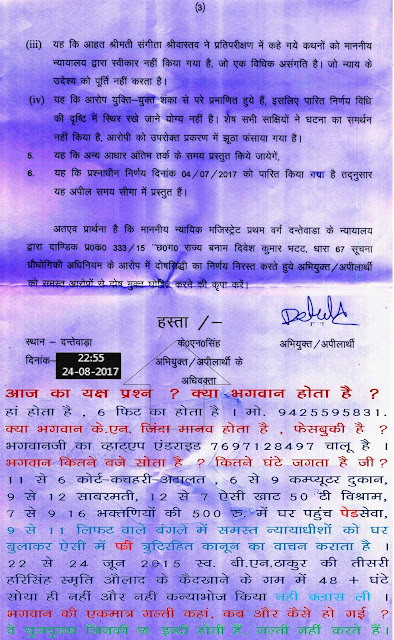 (3)
(iii) यह कि आहत श्रीमती संगीता श्रीवास्तव ने प्रतिपरीक्षण में कहे गये कथनों को माननीय
न्यायालय द्वारा स्वीकार नहीं किया गया है, जो एक विधिक असंगति है। जो न्याय के
उदेश्य को पूर्ति नहीं करता है।
(iv) यह कि आरोप युक्ति-युक्त शंका से परे प्रमाणित हुये हैं, इसलिए पारित निर्णय विधि
की दृष्टि में स्थिर रखे जाने योग्य नहीं है। शेष सभी साक्षियों ने घटना का समर्थन
नहीं किया है, आरोपी को उपरोक्त प्रकरण में झूठा फंसाया गया है।
5. यह कि अन्य आधार अंतिम तर्क के समय प्रस्तुत किये जायेगें,
6. यह कि प्रश्नाधीन निर्णय दिनांक 04/07/2017 को पारित किया गया है तद्नुसार
यह अपील समय सीमा में प्रस्तुत हैं।
अतएव प्रार्थना है कि माननीय न्यायिक मजिस्ट्रेट प्रथम वर्ग दन्तेवाडा के न्यायालय
द्वारा दाण्डिक प्र०क० 333/15 "छ०ग० राज्य बनाम दिवेश कुमार भटट, धारा 67 सूचना
प्रौघोगिकी अधिनियम के आरोप में दोषसिद्धी का निर्णय निरस्त करते हुये अभियुक्त/अपीलार्थी
को समस्त आरोपों से दोष मुक्त घोषित करने की कृपा करें।
हस्ता /-
स्थान - दन्तेवाड़ा के०एन०सिंह अभियुक्त/अपीलार्थी
दिनांक- 22:55 अभियुक्त/अपीलार्थी के
24-08-2017 अधिवक्ता
आज का यक्ष प्रश्न ? क्या भगवान होता है ?
हां होता है , 6 फिट का होता है । मो. 9425595831.
क्या भगवान के.एन. जिंदा मानव होता है , फेसबुकी है ?
भगवानजी का व्हाटएप एंडराइड 7697128497 चालू है ।
भगवान कितने बजे सोता है ? कितने घंटे जगता है जी ?
11 से 6 कोर्ट-कचहरी अदालत , 6 से 9 कम्प्यूटर दुकान,
9 से 12 साबरमती, 12 से 7 ऐसी खाट 50 टी विश्राम,
7 से 9 16 भक्तणियों की 500 रु. में घर पहुंच पेडसेवा,
9 से 11 लिफट वाले बंगले में समस्त न्यायाधीशों को घर
बुलाकर ऐसी में फ्री त्रुटिरहित कानून का वाचन कराता है ।
22 से 24 जून 2015 स्व. बी.एन.ठाकुर की तीसरी
हरिसिंह स्मृति औलाद के कैदखाने के गम में 48 + घंटे
सोया ही नहीं और नही कन्याभोज किया नही क्लास ली ।
भगवान की एकमात्र गल्ती कहां, कब और कैसे हो गई ?